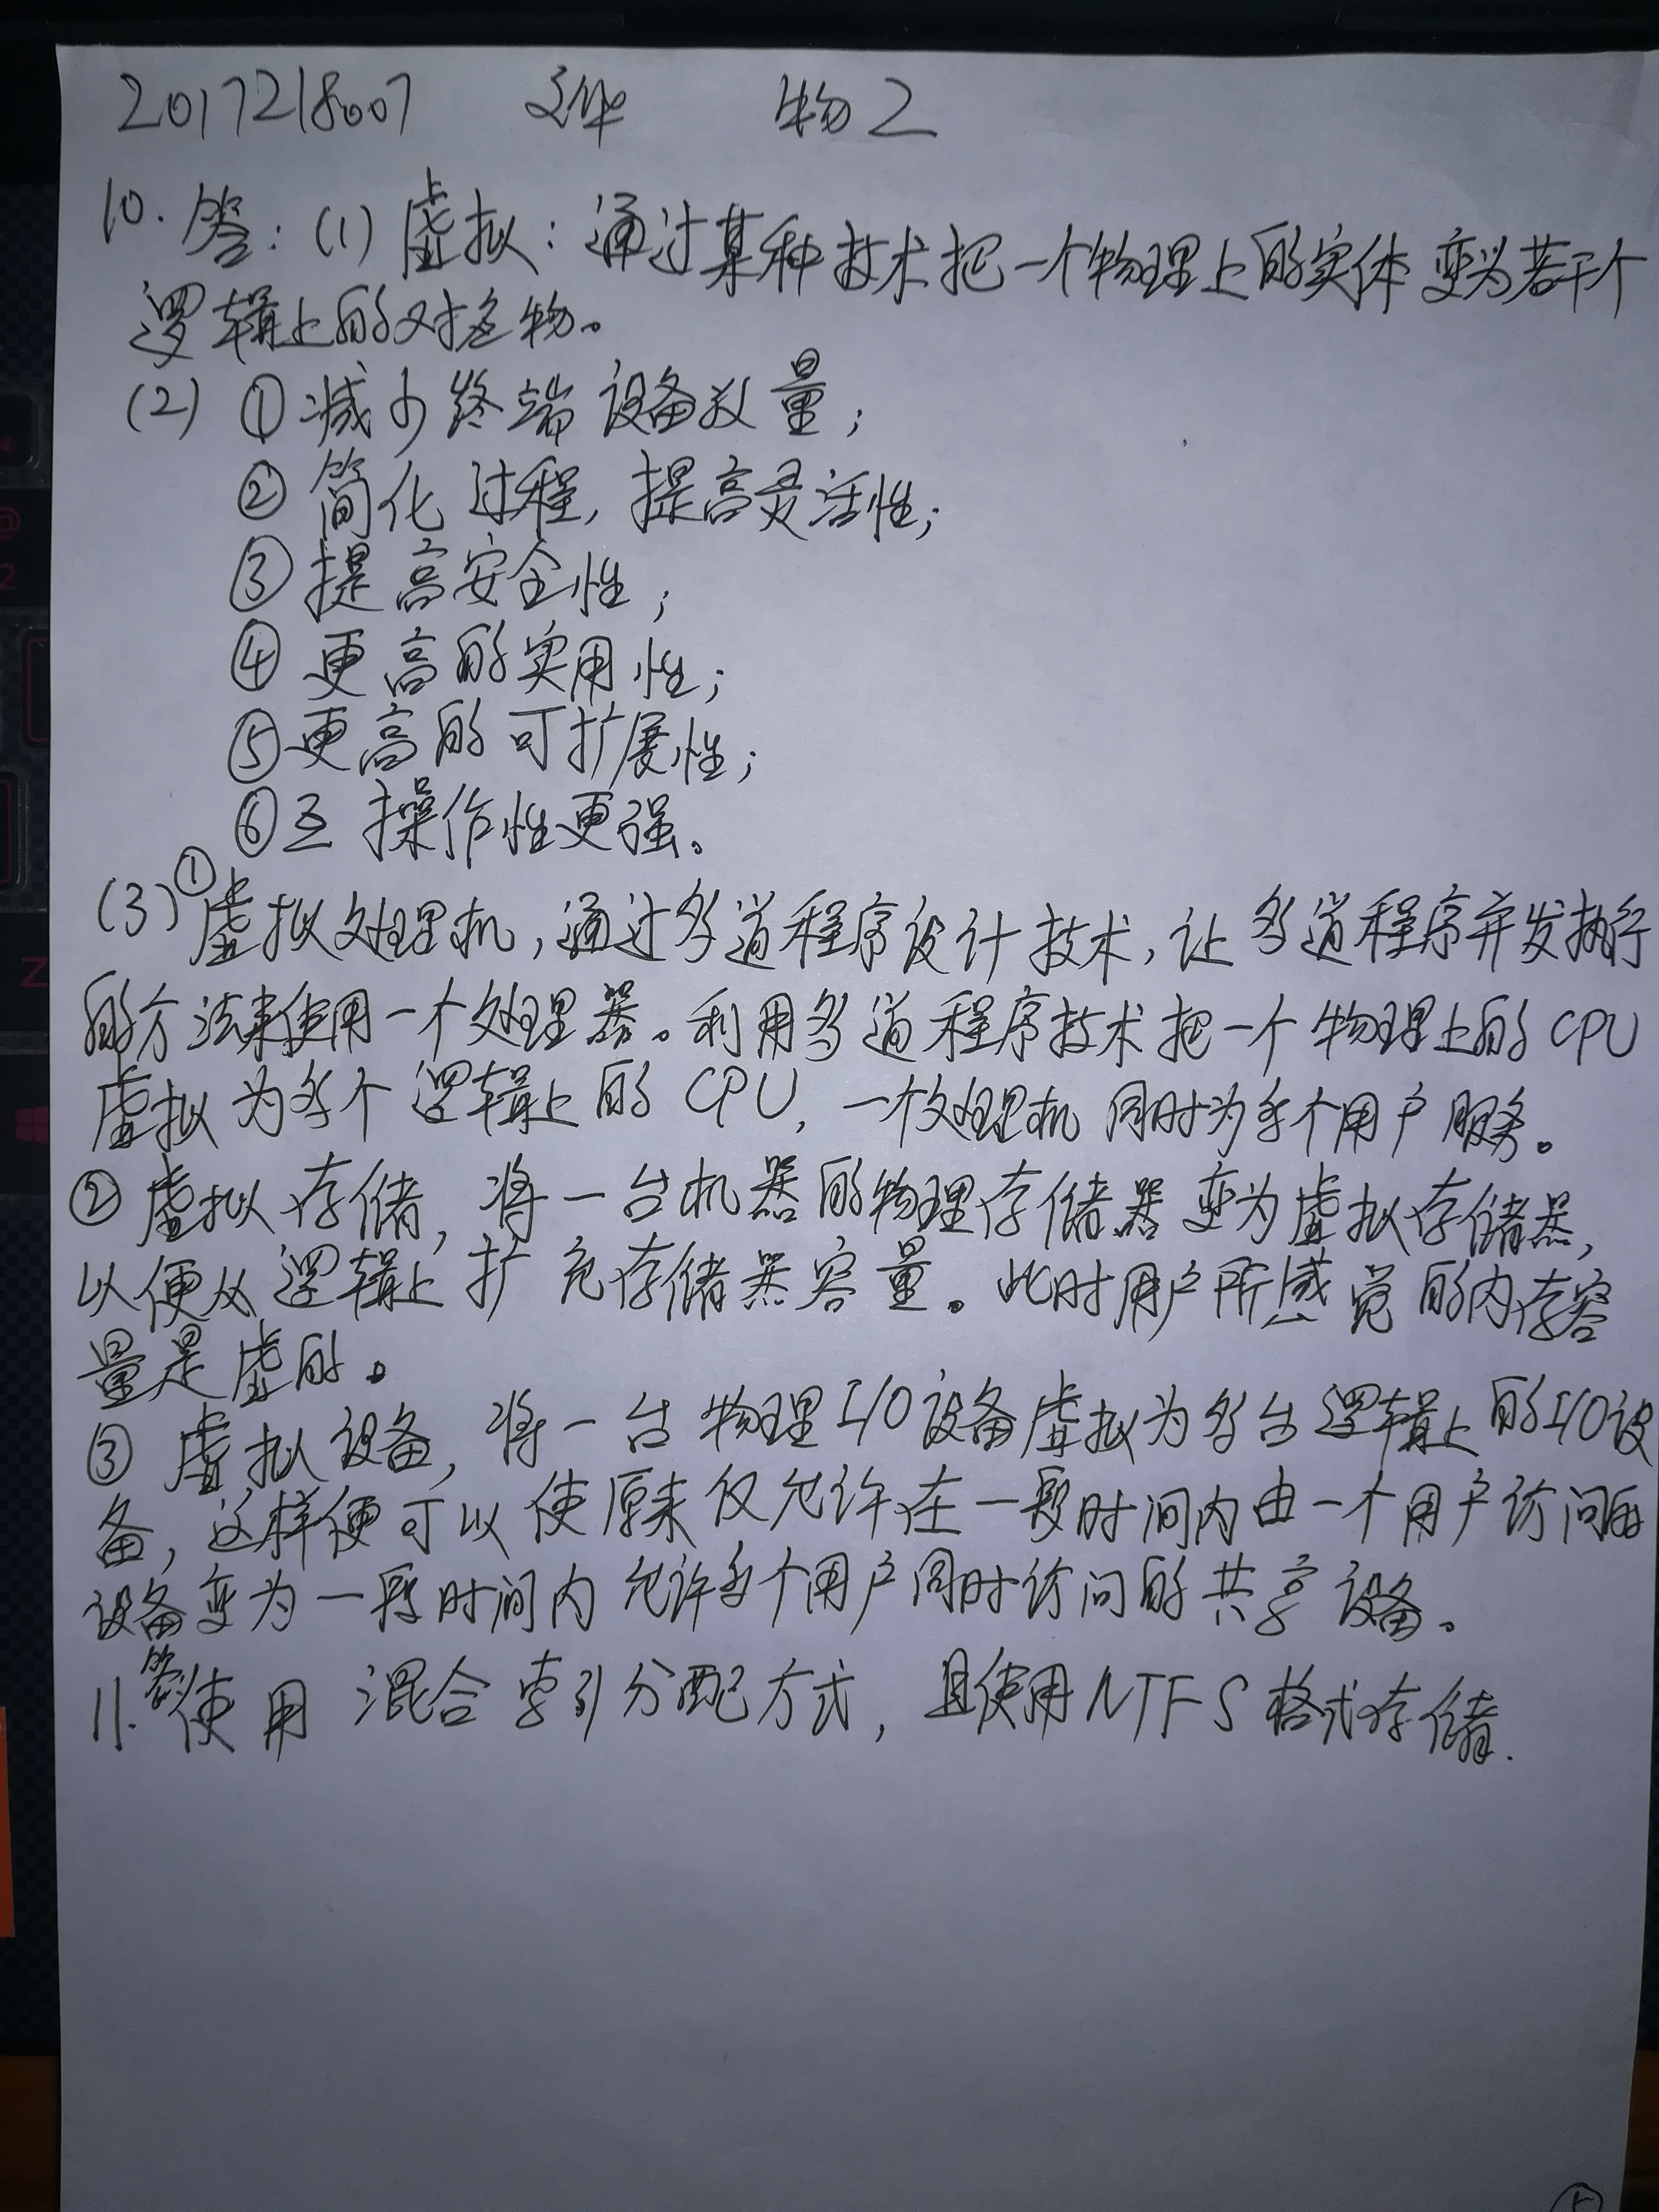 2017218007 物2
10. 答: (1) 虚拟: 通过某种技术把一个物理上的实体变为若干个
逻辑上的对应物。
(2) ①减少终端设备数量;
②简化过程, 提高灵活性;
③提高安全性;
④更高的实用性;
⑤更高的可扩展性;
⑥互操作性更强。
(3)①虚拟处理机, 通过多道程序设计技术, 让多道程序并发执行
的方法来使用一个处理器。利用多道程序技术把一个物理上的CPU
虚拟为多个逻辑上的CPU, 一个处理机同时为多个用户服务。
②虚拟存储, 将一台机器的物理存储器变为虚拟存储器,
以便从逻辑上扩充存储器容量。此时用户所感觉的内存容
量是虚的。
③虚拟设备, 将一台物理I/O设备虚拟为多台逻辑上的I/O设
备, 这样便可以使原来仅允许在一段时间内由一个用户访问的
设备变为一段时间内允许多个用户同时访问的共享设备。
11.答:使用混合索引分配方式, 且使用NTFS格式存储.
⑤